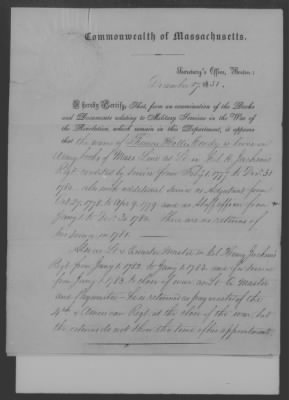 Commonwealth of Massachusetts.
Secretary's Office, Boston:
December 17, 1851.
I hereby Certify, That, from an examination of the Books
and Documents relating to Military Services in the War of
the Revolution, which remain in this Department, it appears
that the name of Thomas Hollis Condy is borne on
Army books of Mass Line as Lt in Col. H. Jacksons
Regt credited by service from Feby 1. 1777 to Dec. 31
1780, also with additional service as Adjutant from
Oct. 29. 1778. to Apr 9. 1779. and as staff officer from
Jany 1. to Dec. 31. 1780. There are no returns of
for 1781.
Also as Lt & Quarter Master in Col Henry Jackson's
Regt from Jany 1. 1782. to Jany 1. 1783. and for service
from Jany 1. 1783. to close of war as Lt Qr Master
and Paymaster - is returned as paymaster of the
4th & American Regt at the close of the war, but
the returns do not show the time of his appointment.